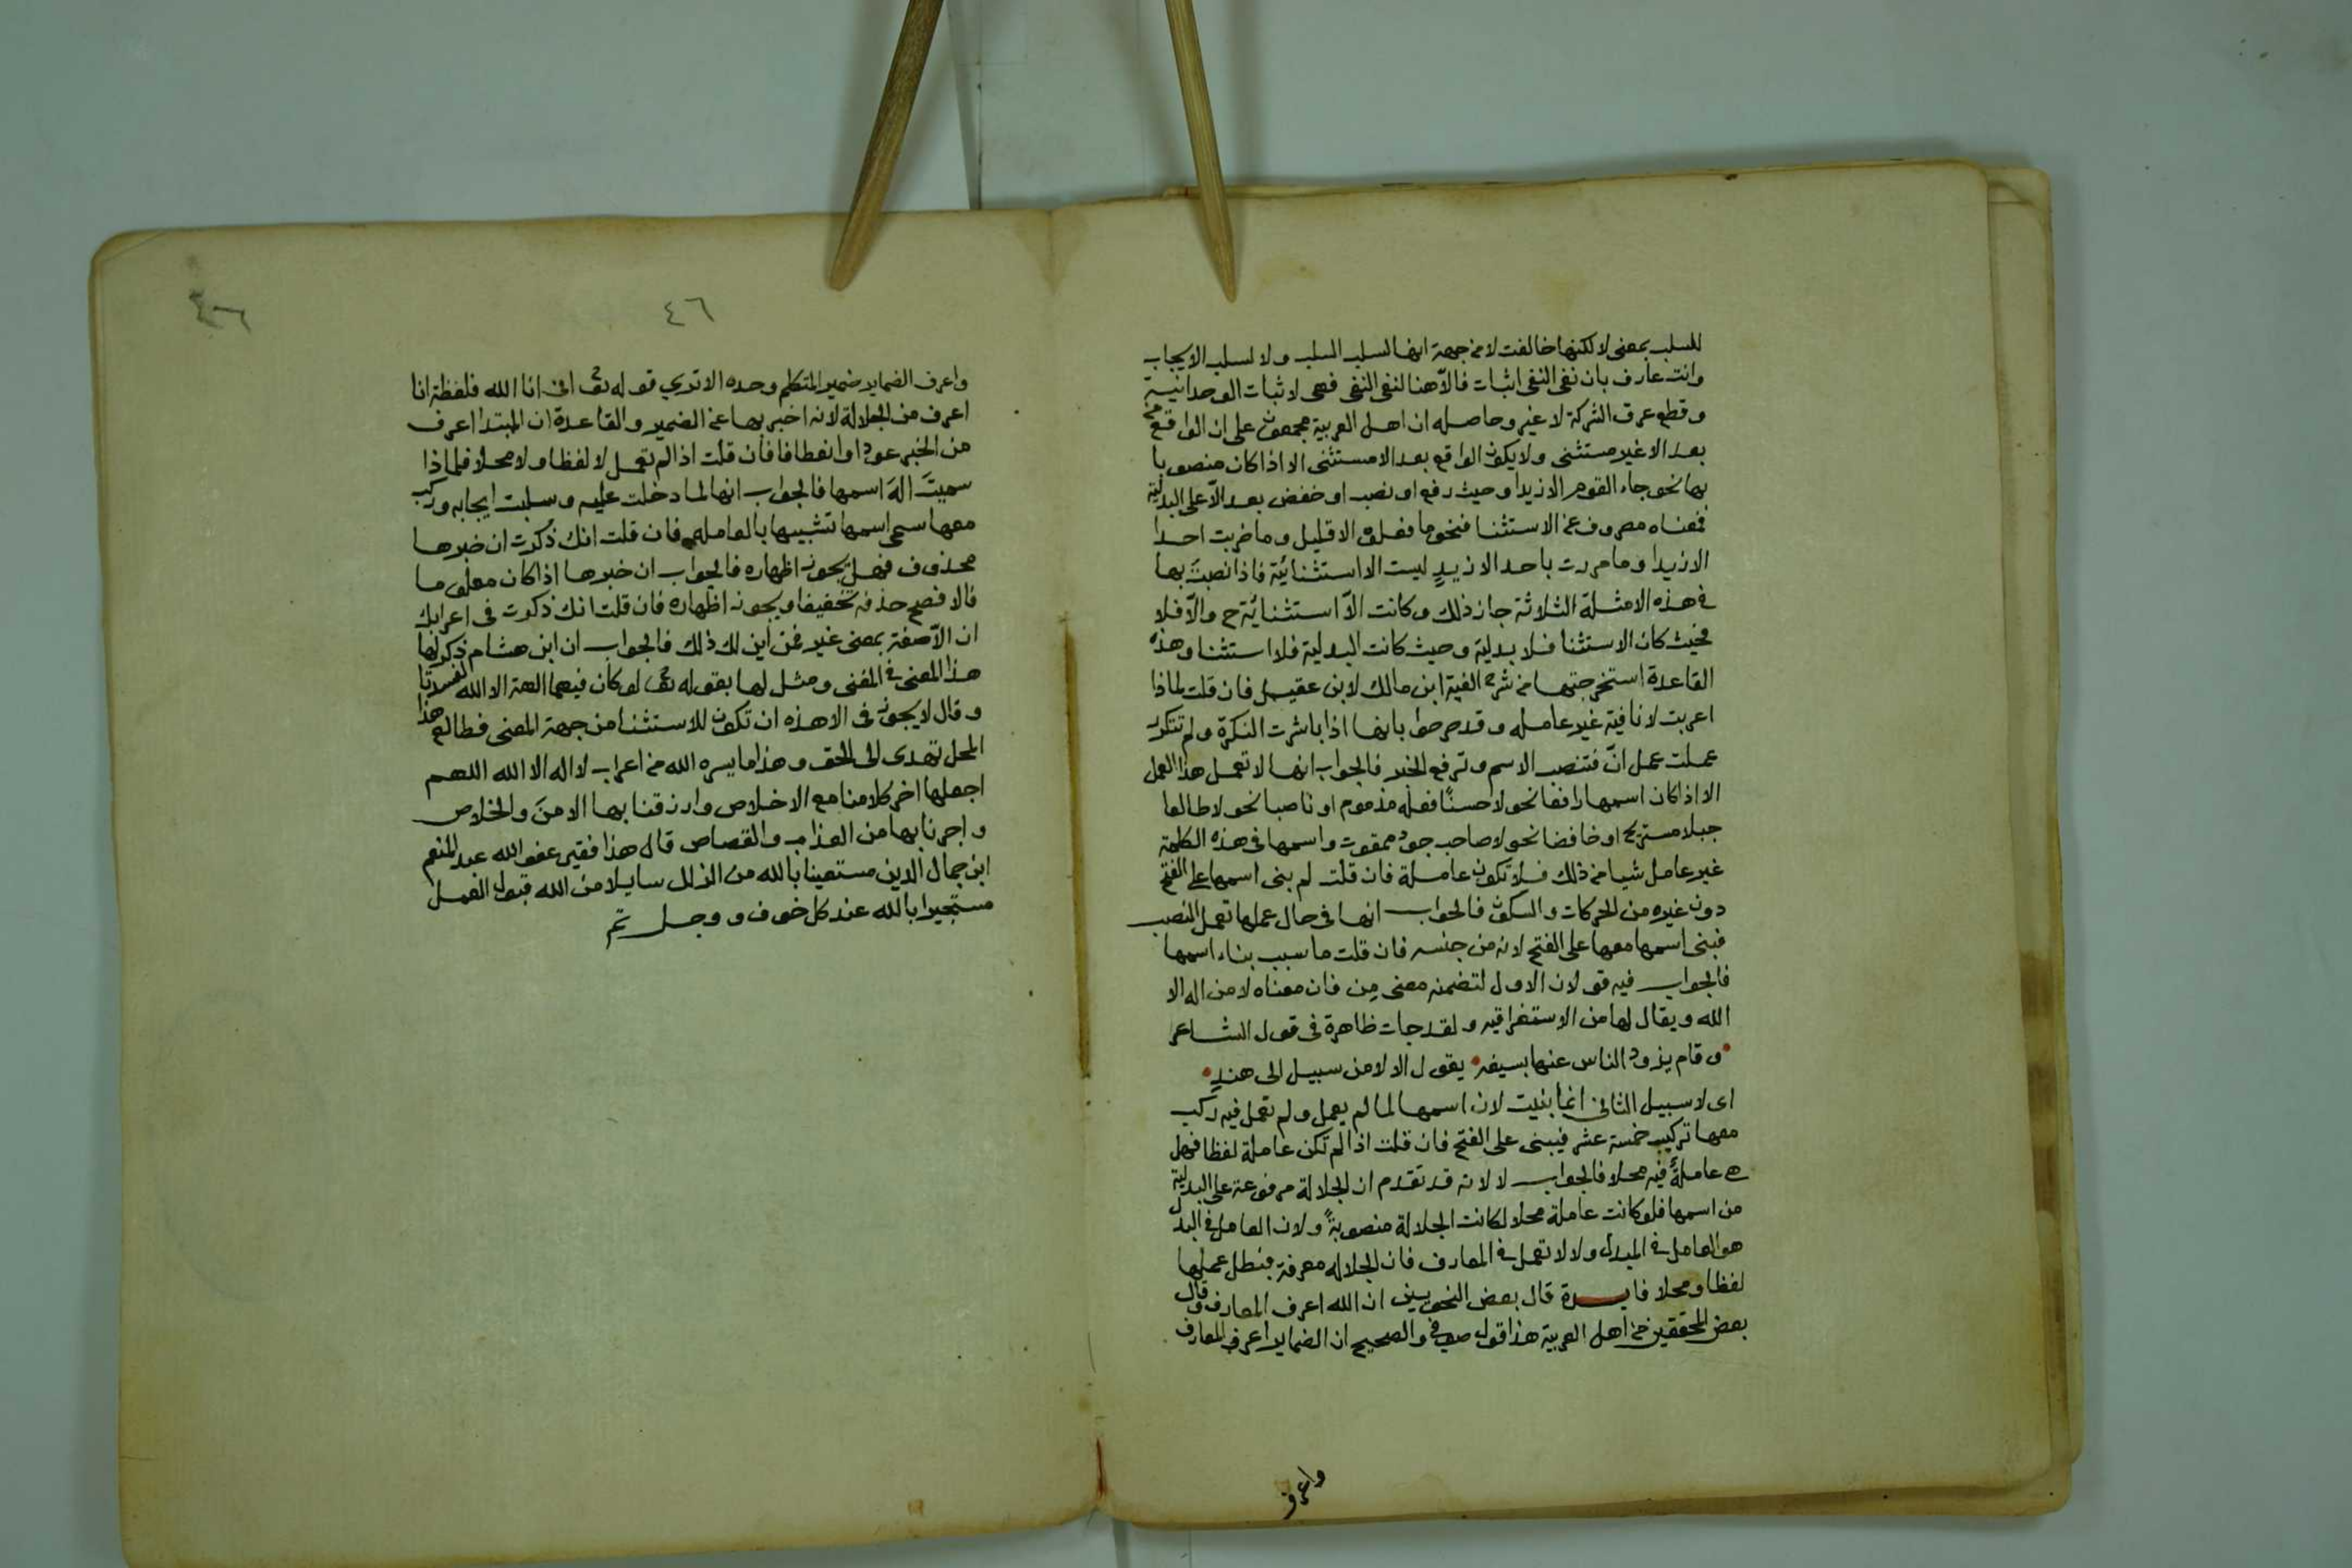 للسلب بمعنى لا لكنها خالفت لا من جهة انها لسلب السلب ولا لسلب الايجاب
وانت عارف بان نفى النفى اثبات فالّا هنا لنفى النفى فهى لاثبات الوحدانية
وقطع عرق الشركة لا غير وحاصله ان اهل العربية مجمعون على ان الواقع
بعد الا غير مستثنى ولا يكون الواقع بعد الا مستثنى الا اذا كان منصوبا
بها نحو جاء القوم الا زيدا وحيث رفع او نصب او خفض بعد الّا على البدلية
فمعناه مصروف عن الاستثنا فنحو ما فعلوه الا قليل وما ضربت احدا
الا زيدا وما مررت باحد الا زيدٍ ليست الا استثنائية فاذا نصبتَ بها
فى هذه الامثلة الثلاثة جاز ذلك وكانت الّا استثنائية ح والّا فلا
فحيث كان الاستثنا فلا بدلية وحيث كانت البدلية فلا استثنا وهذه
القاعدة استخرجتها من شرح الفية ابن مالك لابن عقيل فان قلت لماذا
اعربت لا نافية غير عامله وقد صرحوا بانها اذا باشرت النكرة ولم تتكرر
عملت عمل انّ فتنصب الاسم وترفع الخبر فالجواب انها لا تعمل هذا العمل
الا اذا كان اسمها رافعا نحو لا حسنًا فعله مذموم او ناصبا نحو لا طالعا
جبلا مستريح او خافضا نحو لا صاحب جود ممقوت واسمها فى هذه الكلمة
غير عامل شيا من ذلك فلا تكون عاملة فان قلت لم بنى اسمها على الفتح
دون غيره من الحركات والسكون فالجواب انها فى حال عملها تعمل النصب
فبنى اسمها معها على الفتح لانه من جنسه فان قلت ما سبب بناء اسمها
فالجواب فيه قولان الاول لتضمنه معنى مِن فان معناه لا من اله الا
الله ويقال لها من الاستغراقيه ولقد جات ظاهرة فى قول الشاعر
وقام يزود الناس عنها بسيفه يقول الا لا من سبيل الى هندٍ
اى لا سبيل الثانى انما بنيت لان اسمها لما لم يعمل ولم تعمل فيه ركب
معها تركيب خمسة عشر فيبنى على الفتح فان قلت اذا لم تكن عاملة لفظا فهل
هى عاملةً فيه محلا فالجواب لا لانه قد تقدم ان الجلالة مرفوعة على البدلية
من اسمها فلو كانت عاملة محلا لكانت الجلالة منصوبةً ولان العامل فى البدل
هو العامل فى المبدل ولا لا تعمل فى المعارف فان الجلاله معرفة فبطل عملها
لفظا ومحلا فايدة قال بعض النحويين ان الله اعرف المعارف وقال
بعض المحققين من اهل العربية هذا قول صوفى والصحيح ان الضماير اعرف المعارف
واعرف
٤٦
واعرف الضماير ضمير المتكلم وحده الا ترى قوله تع انى انا الله فلفظة انا
اعرف من الجلالة لانه اخبر بها عن الضمير والقاعدة ان المبتدا اعرف
من الخبر عودا وانعطافا فأن قلت اذا لم تعمل لا لفظا ولا محلا فلماذا
سميتَ الهَ اسمها فالجواب انها لما دخلت عليه وسلبت ايجابه وركب
معها سمى اسمها تشبيها بالعامله فان قلت انك ذكرت ان خبرها
محذوف فهل يجوز اظهاره فالجواب ان خبرها اذا كان معلوما
فالافصح حذفه تخفيفا ويجوز اظهاره فان قلت انك ذكرت فى اعرابك
ان الّا صفة بمعنى غير فمن اين لك ذلك فالجواب ان ابن هشام ذكر لها
هذا المعنى فى المغنى ومثل لها بقوله تع لو كان فيهما الهة الا الله لفسدتا
وقال لا يجوز فى الا هذه ان تكون للاستثنا من جهة المعنى فطالع هذا
المحل تهدى الى الحق وهذا ما يسره الله من اعراب لا اله الا الله اللهم
اجعلها اخر كلامنا مع الاخلاص وارزقنا بها الامنَ والخلاص
واجرنا بها من العذاب والقصاص قال هذا فقير عفو الله عبد المنعم
ابن جمال الدين مستعينا بالله من الزلل سايلا من الله قبول العمل
مستجيرا بالله عند كل خوف ووجل تم